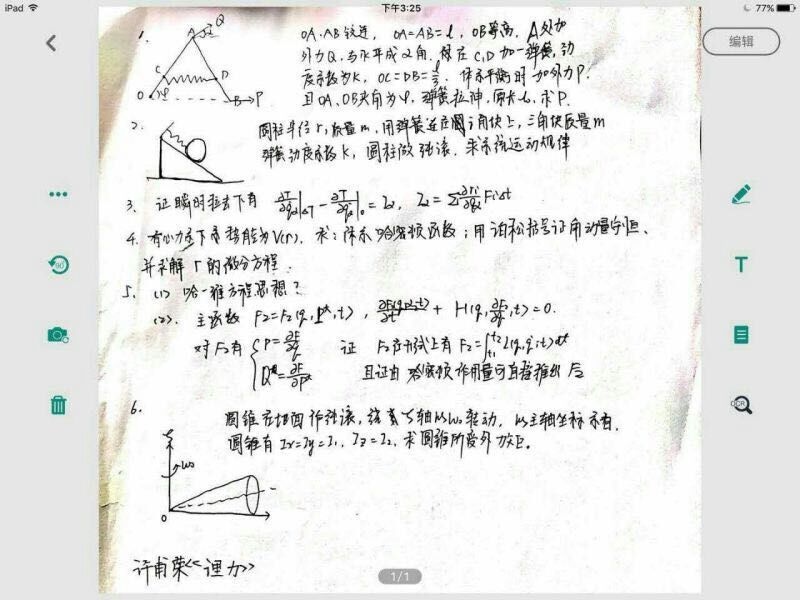 iPad 下午3:25 77%
编辑
1. OA、AB铰连, OA=AB=l, OB等高, A处加
外力Q, 与水平成α角. 现在C,D加一弹簧, 劲
度系数为K, OC=DB=
体系平衡时加外力P.
且OA、OB夹角为φ, 弹簧拉伸, 原长l₀, 求P.
A Q α
C D
O φ B P
2. 圆柱半径r, 质量m, 用弹簧连在三角块上, 三角块质量m
弹簧劲度系数K, 圆柱做纯滚. 求系统运动规律
3. 证瞬时力下有
4. 有心力下势能为V(r), 求: 体系哈密顿函数; 用泊松括号证角动量守恒、
并求解r的微分方程.
5. (1) 哈-雅方程思想?
(2). 主函数 F₂=F₂(q, P*, t), + H(q, ∂F₂/∂q, t)=0.
对F₂有 { p=∂F/∂q 证 F₂形式上有 F₂=∫L(q,q̇,t)dt
Q*=∂F/∂P* 且证由哈密顿作用量可直接推出F₂
6. 圆锥在切面作纯滚, 绕轴以ω₀转动,
圆锥有 Ix=Iy=I₁, Iz=I₂, 求圆锥所受外力矩.
ω₀
O
许甫荣《理力》
1/1
T
90
OCR